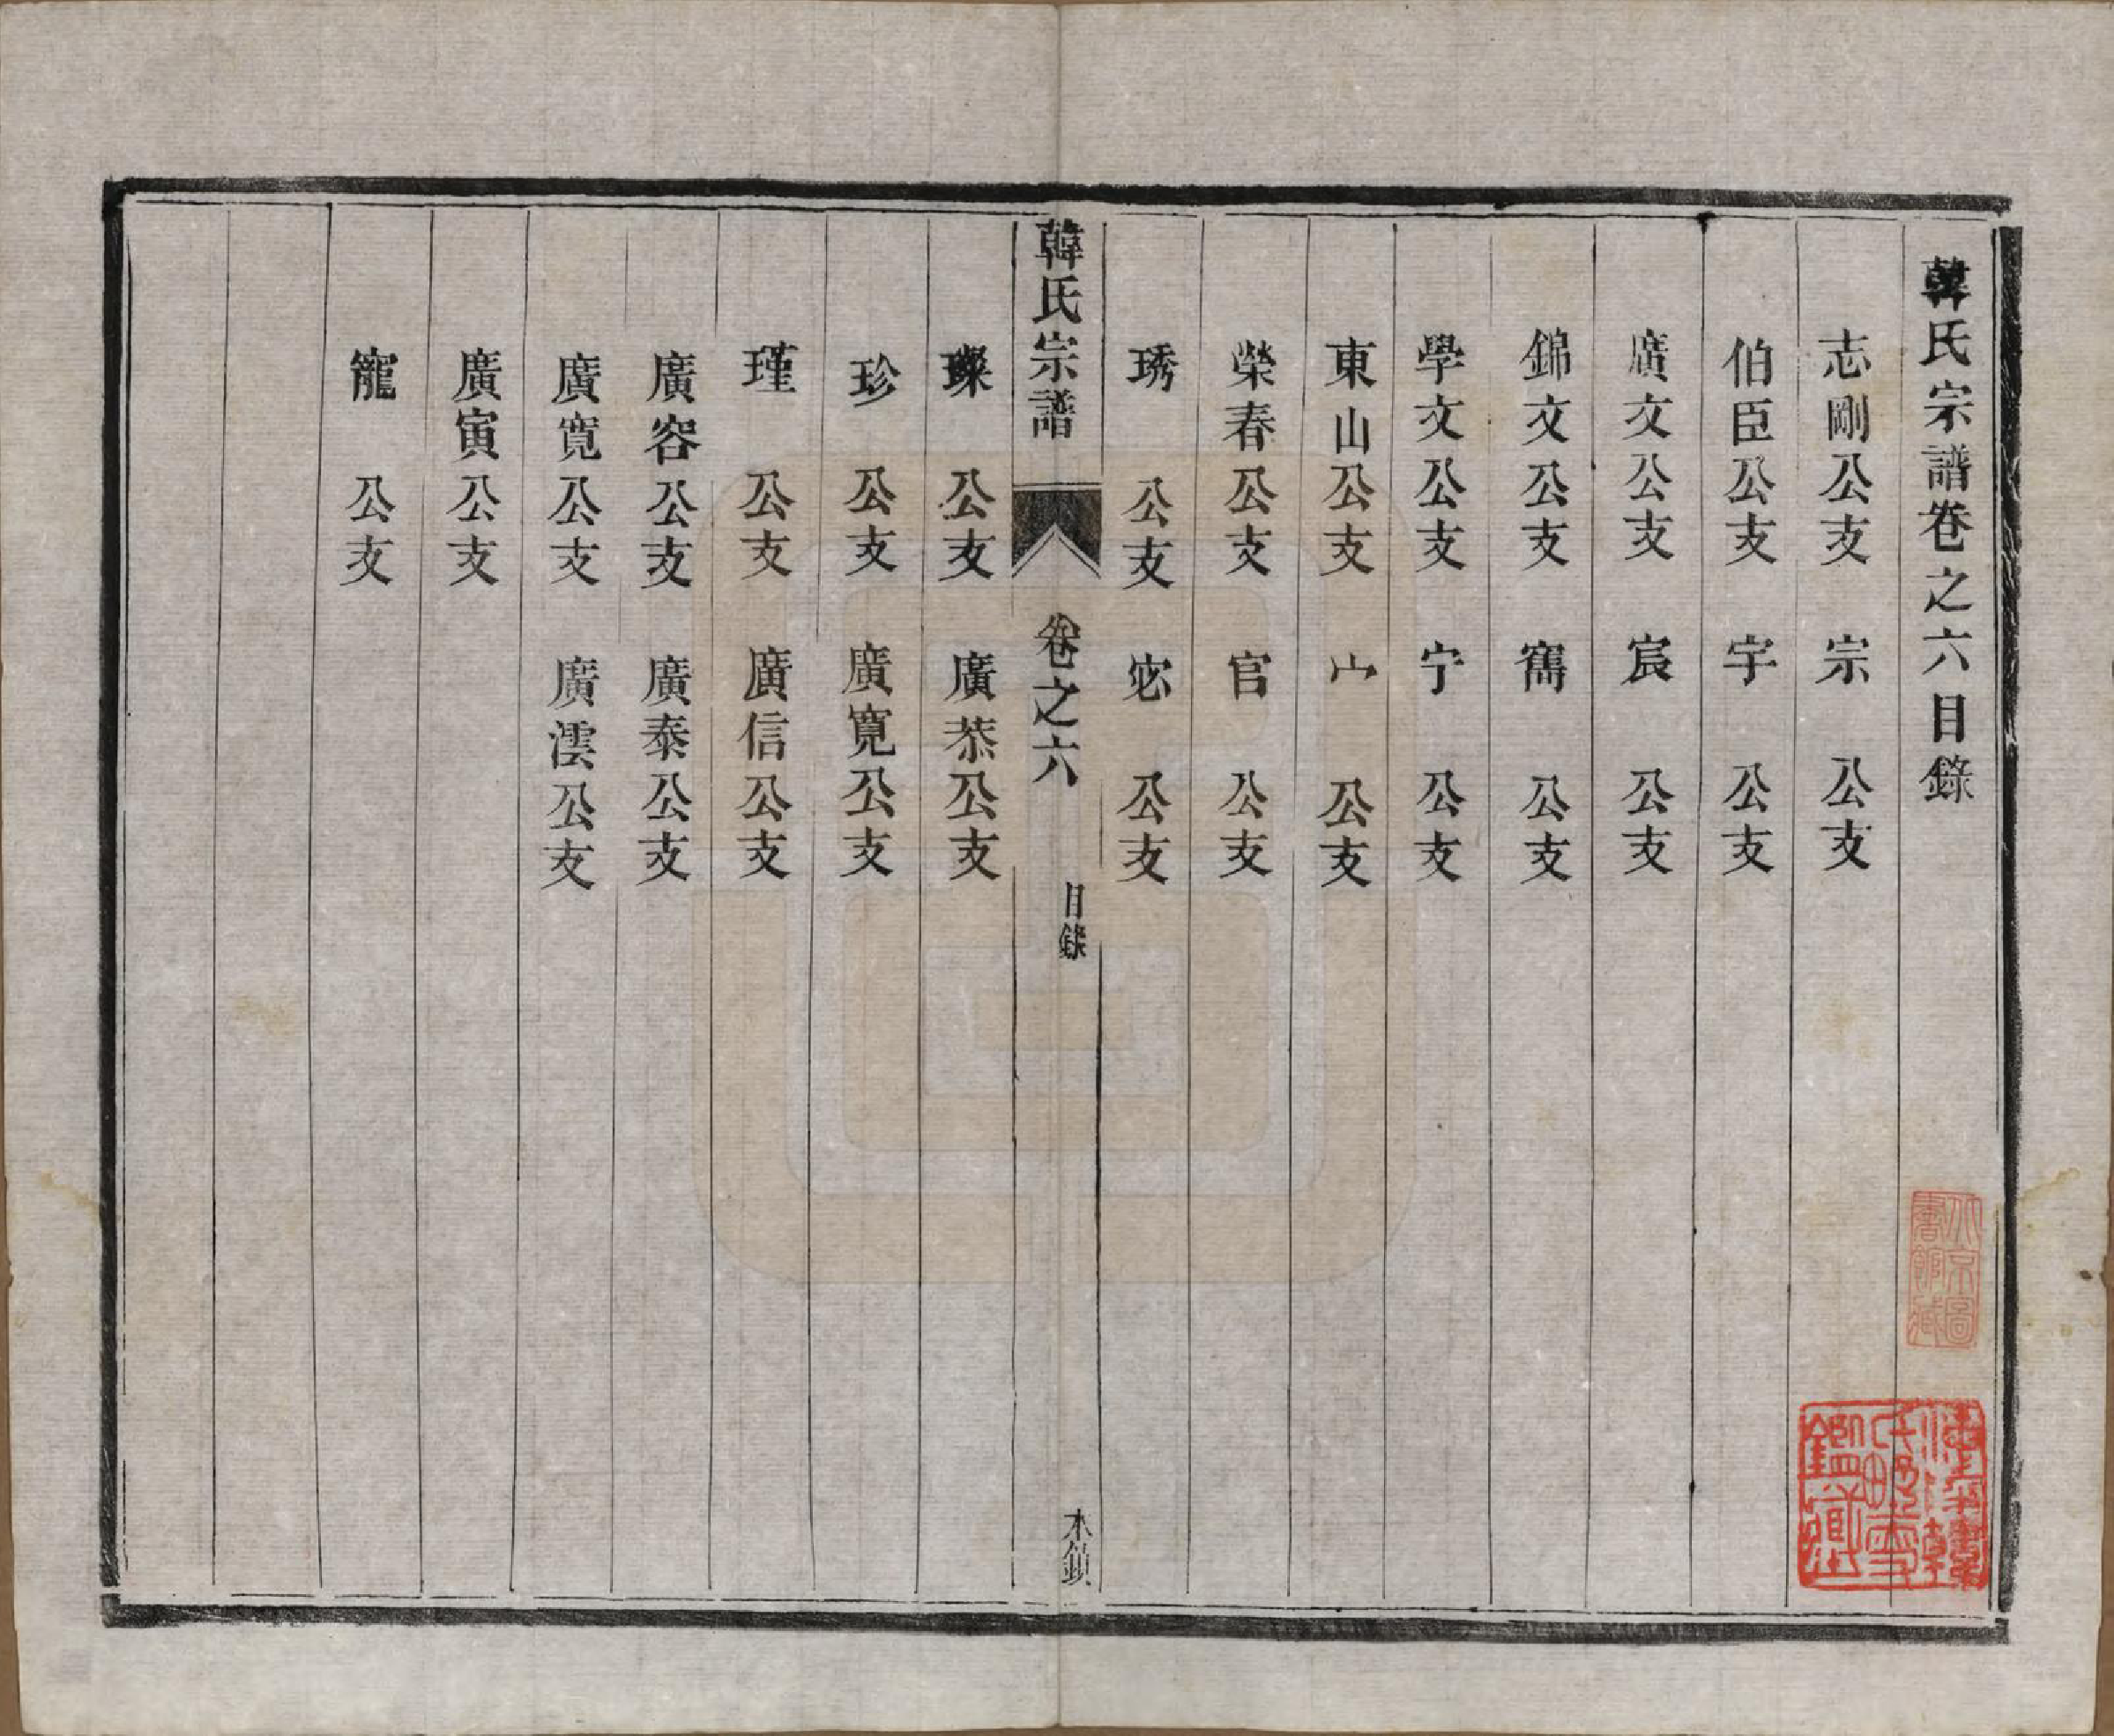 韓氏宗譜卷之六目錄
志剛公支　宗　公支
伯臣公支　宇　公支
廣文公支　宸　公支
錦文公支　寯　公支
學文公支　宁　公支
東山公支　宀　公支
榮春公支　官　公支
琇　公支　宓　公支
韓氏宗譜　卷之六　目錄　木鎮
璨　公支　廣恭公支
珍　公支　廣寬公支
瑾　公支　廣信公支
廣容公支　廣泰公支
廣寬公支　廣澐公支
廣寅公支
寵　公支
北京圖書館藏